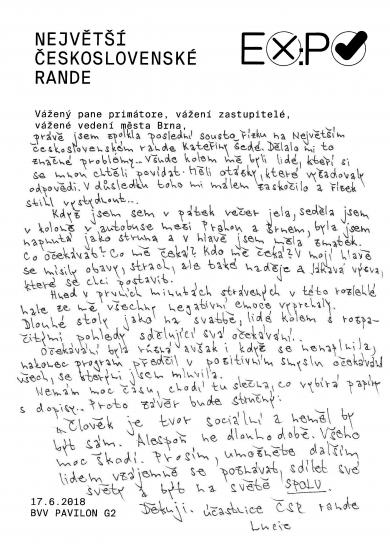 NEJVĚTŠÍ
ČESKOSLOVENSKÉ
RANDE
EX:PO
Vážený pane primátore, vážení zastupitelé,
vážené vedení města Brna,
právě jsem zpolkla poslední sousto řízku na Největším
československém rande Kateřiny Šedé. Dělalo mi to
značné problémy.. Všude kolem mě byli lidé, kteří si
se mnou chtěli povídat. Měli otázky, které vyžadovaly
odpovědi. V důsledku toho mi málem zaskočilo a řízek
stihl vystydnout...
Když jsem sem v pátek večer jela, seděla jsem
v koloně v autobuse mezi Prahou a Brnem, byla jsem
napnutá jako struna a v hlavě jsem měla zmatek.
Co očekávat? Co mě čeká? Kdo mě čeká? V mojí hlavě
se mísily obavy, strach, ale také naděje a lákavá výzva,
které se chci postavit.
Hned v prvních minutách strávených v této rozlehlé
hale ze mě všechny negativní emoce vyprchaly.
Dlouhé stoly jako na svatbě, lidé kolem s rozpa-
čitými pohledy sdělující svá očekávání..
Očekávání byla různá avšak i když se nenaplnila,
nakonec program předčil v pozitivním smyslu očekávání
všech, se kterými jsem mluvila.
Nemám moc času, chodí tu slečna, co vybírá papíry
s dopisy.. Proto závěr bude stručný:
Člověk je tvor sociální a neměl by
být sám. Alespoň ne dlouhodobě. Všeho
moc škodí. Prosím, umožněte dalším
lidem vzájemně se poznávat, sdílet své
světy a být na světě SPOLU.
Děkuji. účastnice ČSR rande
Lucie
17.6.2018
BVV PAVILON G2